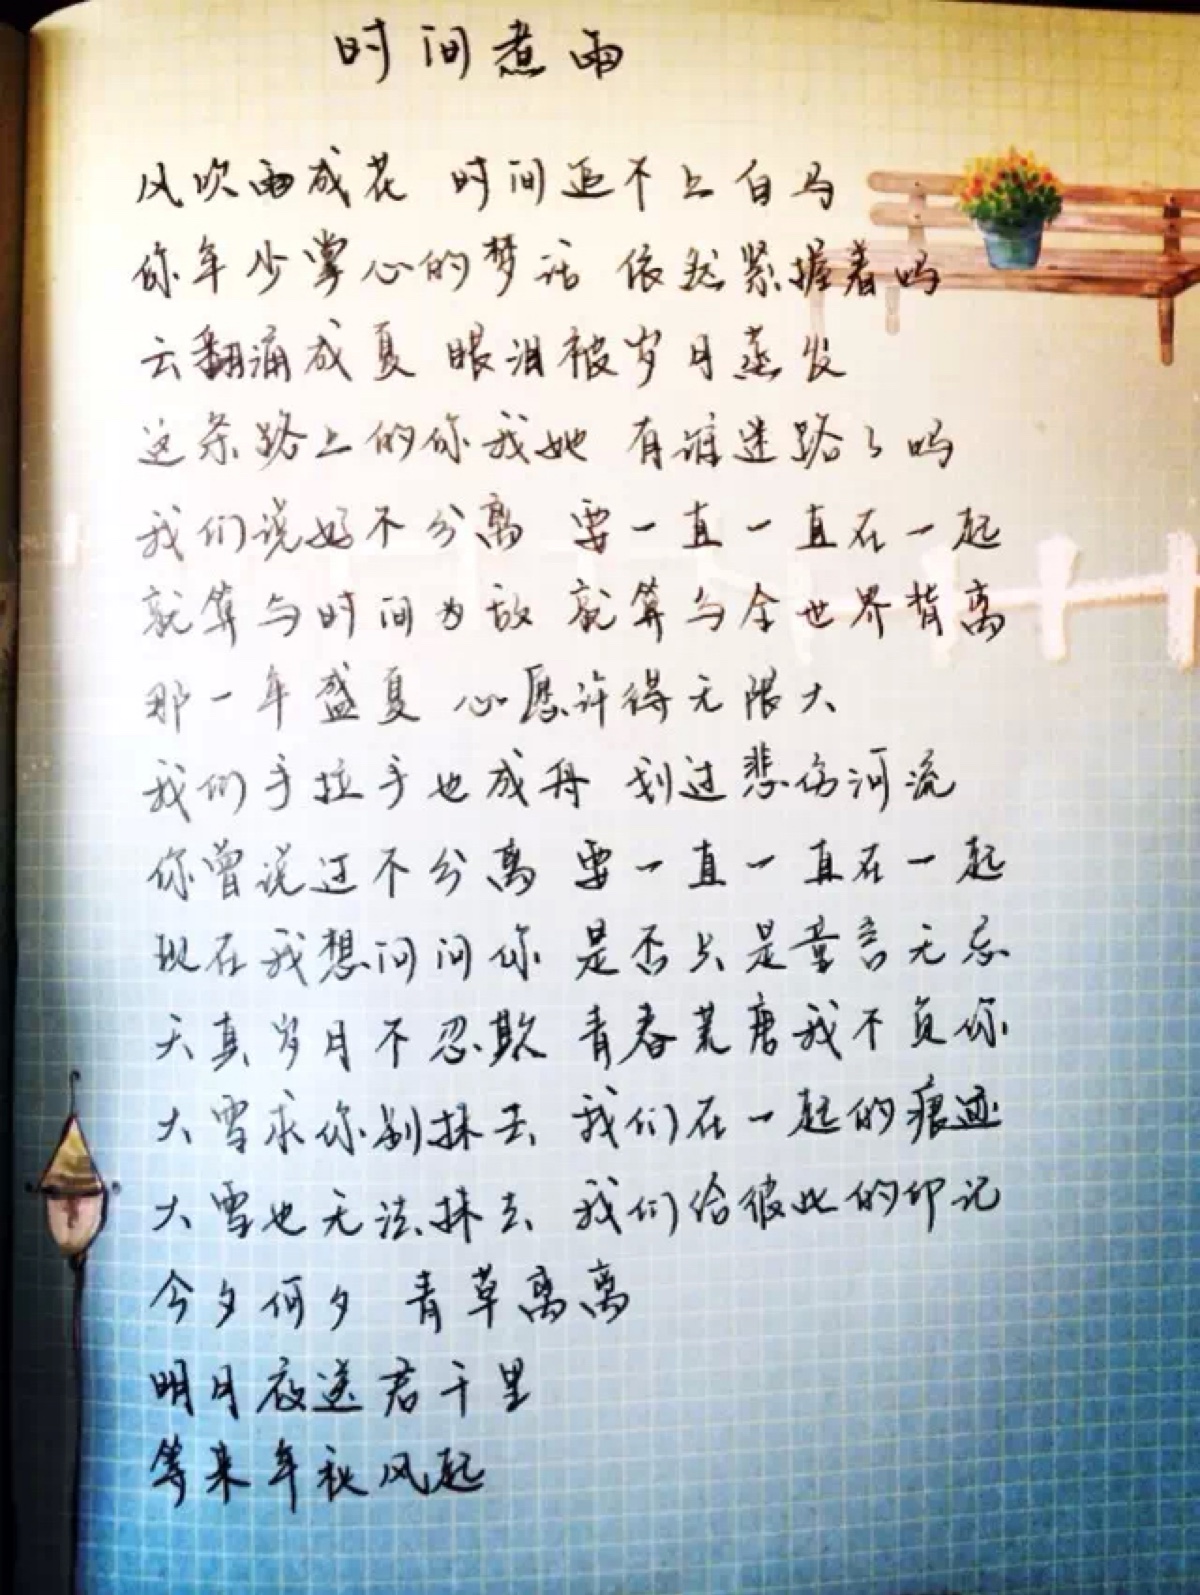 时间煮雨
风吹雨成花 时间追不上白马
你年少掌心的梦话 依然紧握着吗
云翻涌成夏 眼泪被岁月蒸发
这条路上的你我她 有谁迷路了吗
我们说好不分离 要一直一直在一起
就算与时间为敌 就算与全世界背离
那一年盛夏 心愿许得无限大
我们手拉手也成舟 划过悲伤河流
你曾说过不分离 要一直一直在一起
现在我想问问你 是否只是童言无忌
天真岁月不忍欺 青春荒唐我不负你
大雪求你别抹去 我们在一起的痕迹
大雪也无法抹去 我们给彼此的印记
今夕何夕 青草离离
明月夜送君千里
等来年秋风起